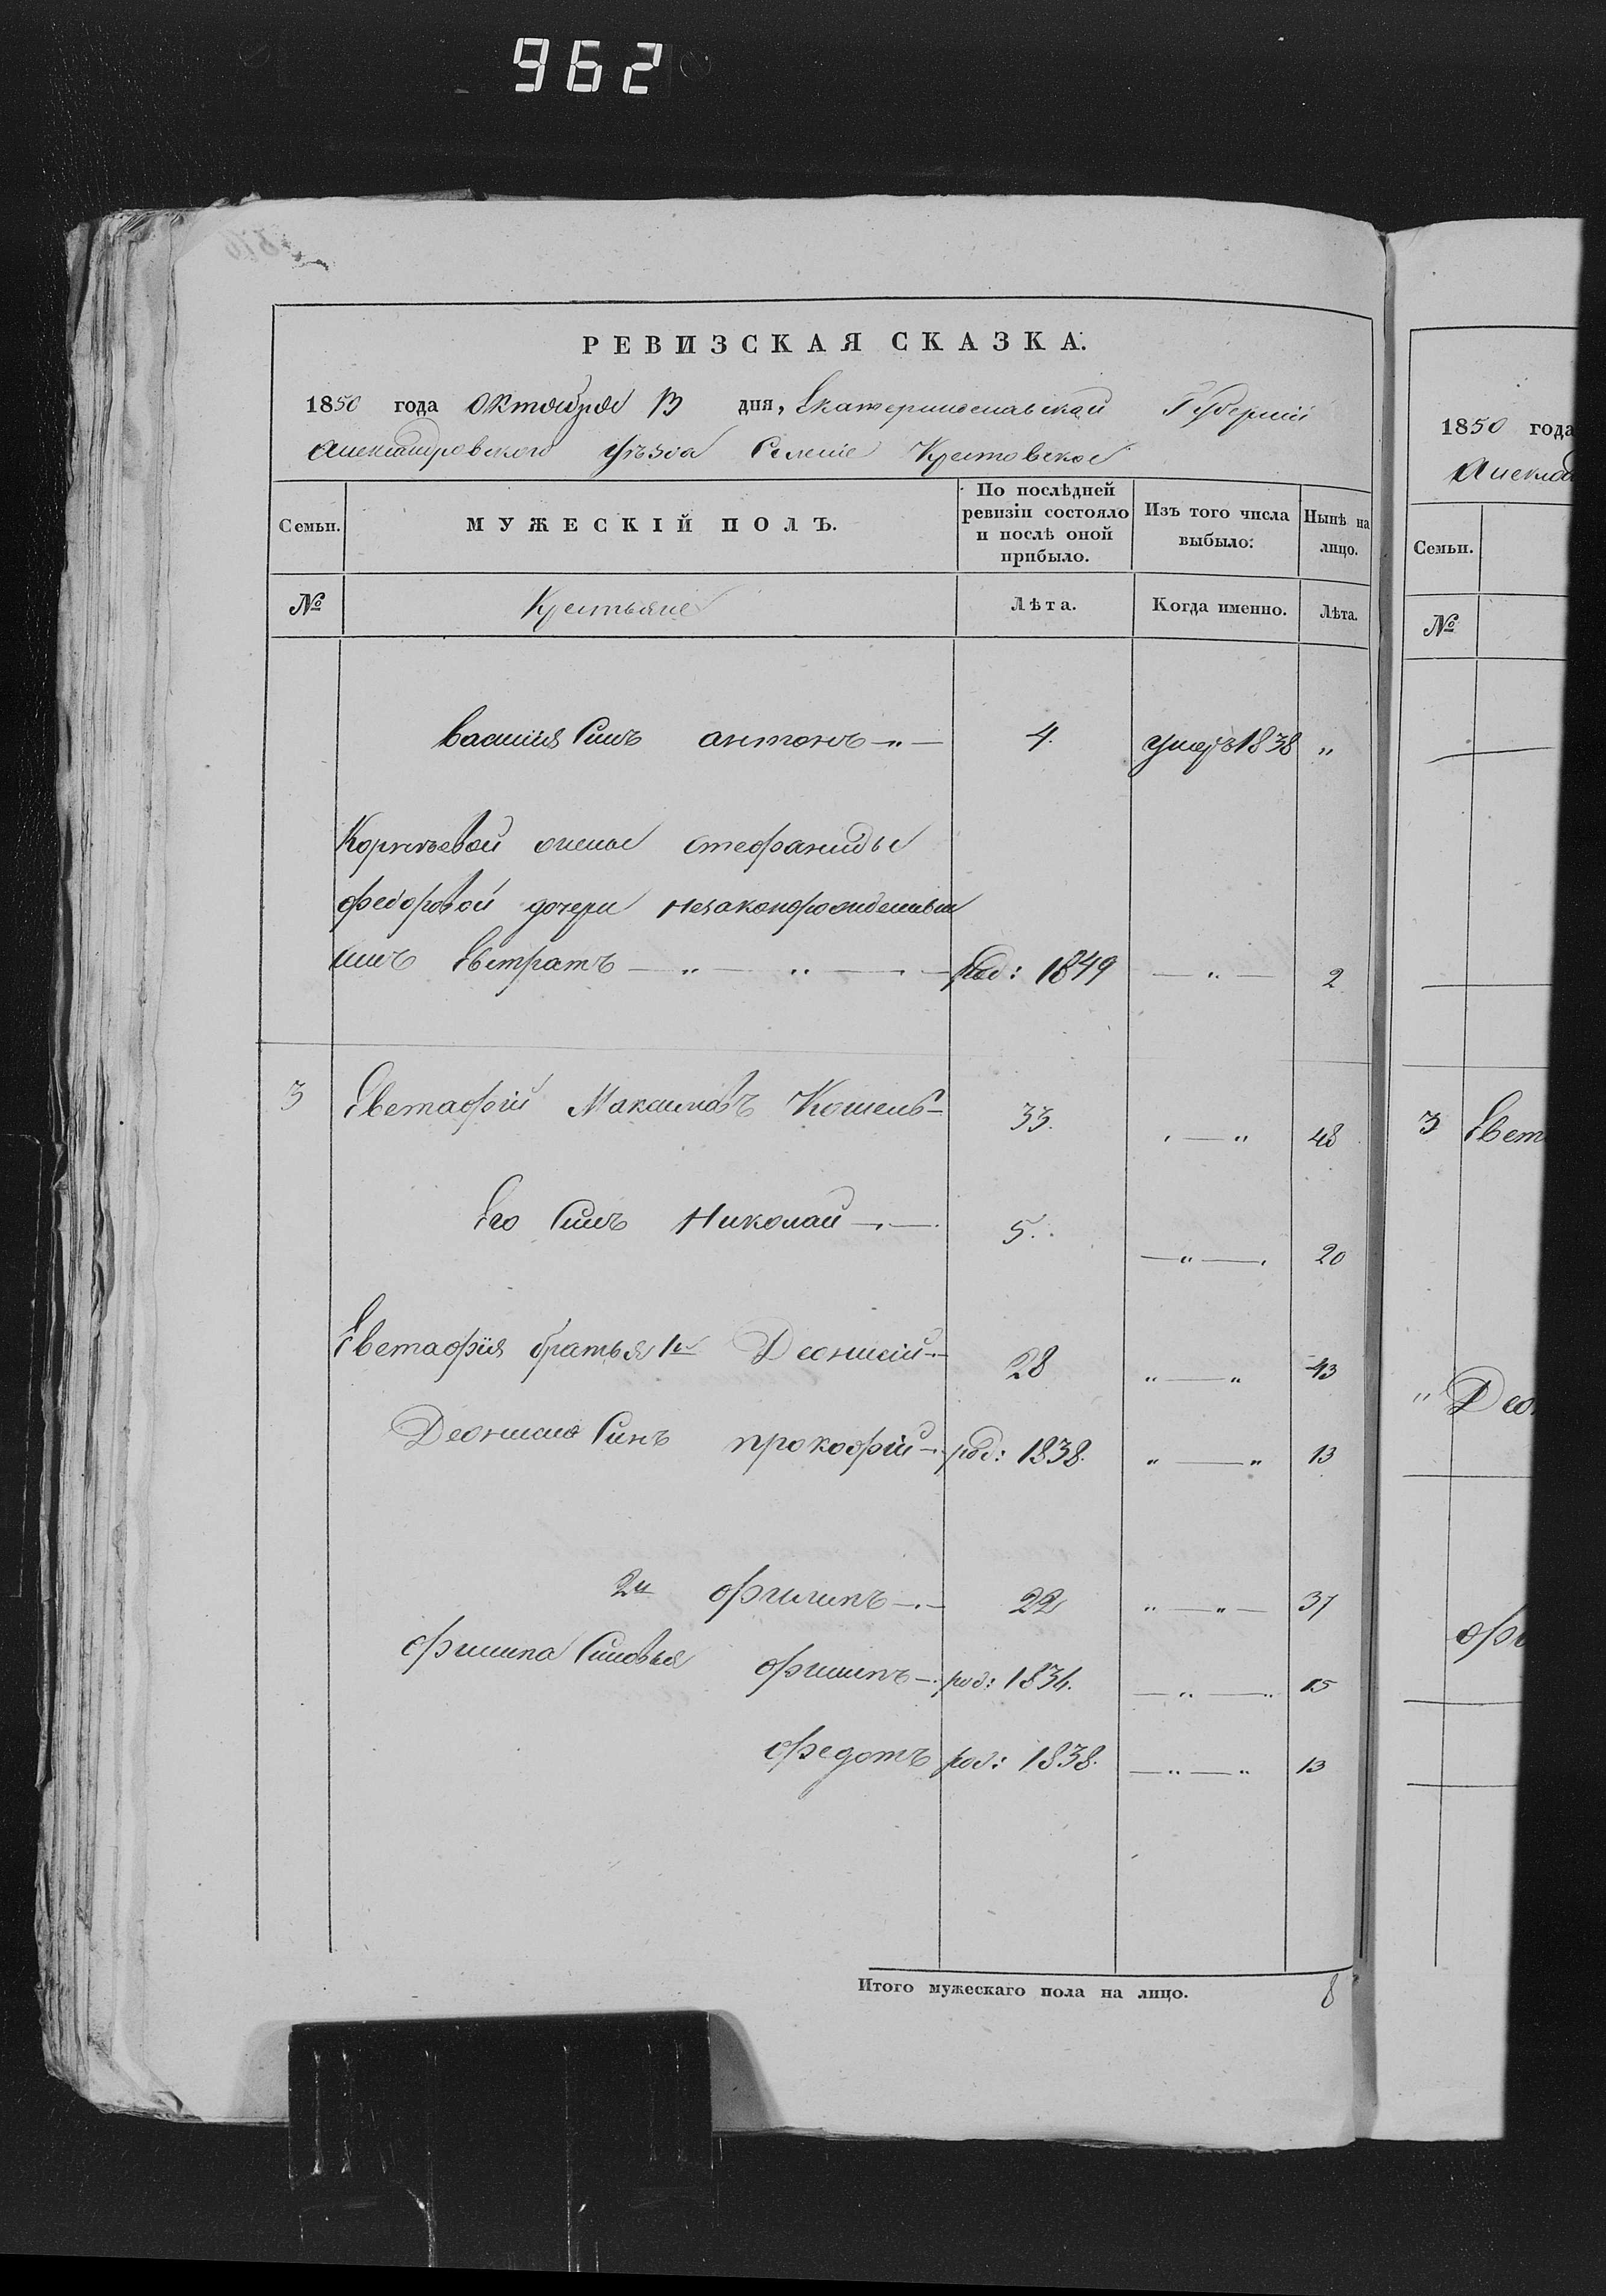 962
РЕВИЗСКАЯ СКАЗКА.
1850 года Октября 13 дня, Екатеринославской Губерніи
Александровского уѣзда Селеніе Крестовское
Семьи. МУЖЕСКІЙ ПОЛЪ. По послѣдней ревизіи состояло и послѣ оной прибыло. Изъ того числа выбыло: Нынѣ на лицо.
№ Крестьяне Лѣта. Когда именно. Лѣта.
Василия Синъ антонъ —„— 4. умеръ 1838 „
Корнѣевой жены стефаниды
федоровой дочери незаконорожденный
синъ Евстратъ — „ — „ — род: 1849 — „ — 2
3 Евстафій Максимовъ Кошель— 33. „ — „ 48
Его Синъ Николай —„— 5. — „ — 20
Евстафія братья 1й Деонисій— 28 „ — „ 43
Деонисия Синъ прокофій— род: 1838. „ — „ 13
2й филипъ —„— 22 „ — „ — 37
филипа Синовья филипъ— род: 1834. — „ — „ 15
федотъ род: 1838. — „ — „ 13
Итого мужескаго пола на лицо. 8
1850 года
Семьи.
№
3 Евст
„ Део
фи